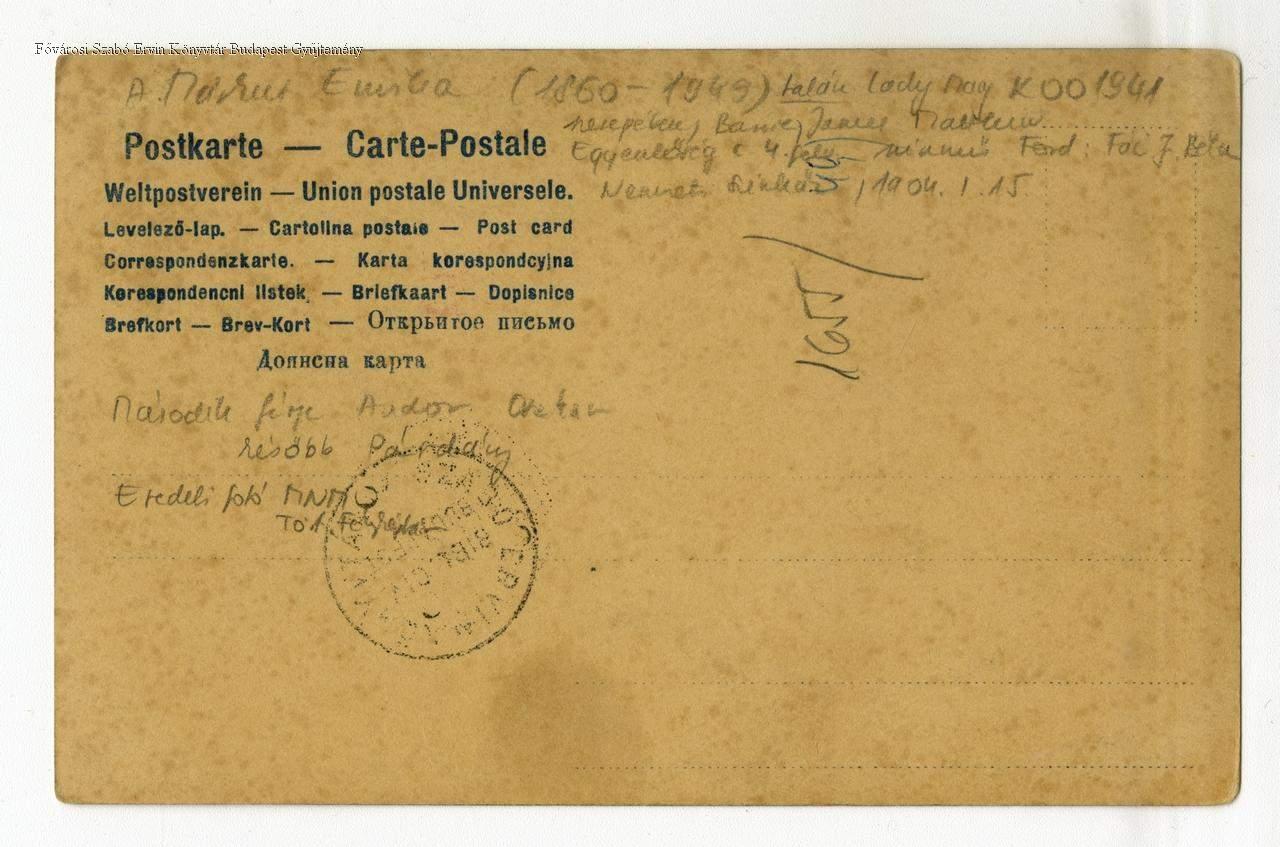 Fővárosi Szabó Ervin Könyvtár Budapest Gyűjtemény
A. Márkus Emília (1860-1949) talán Lady Mary K001941
szerepében, Barrie, James Matthew
Egyenlőség c. 4 felv. színmű Ford: Fái J. Béla
Nemzeti Színház, 1904. I. 15.
Postkarte — Carte-Postale
Weltpostverein — Union postale Universele.
Levelező-lap. — Cartolina postale — Post card
Correspondenzkarte. — Karta korespondcyjna
Korespondencni listek. — Briefkaart — Dopisnice
Brefkort — Brev-Kort — Открытое письмо
Дописна карта
1655/
Második férje Andor
később Párdány
Eredeti fotó MNM
SZABÓ ERVIN